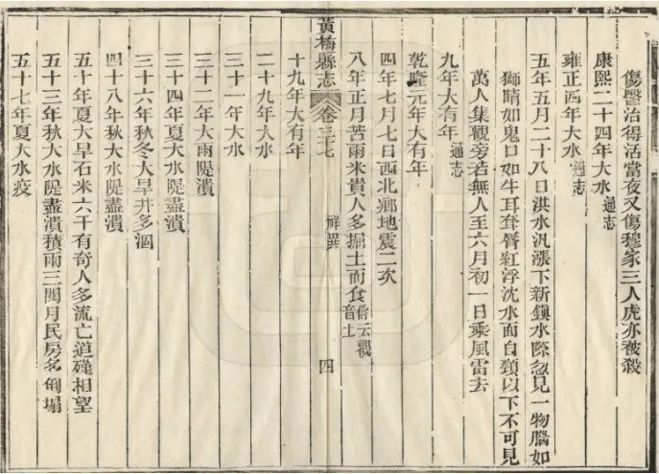 傷醫治得活當夜又傷穆家三人虎亦被殺
康熙二十四年大水通志
雍正四年大水通志
五年五月二十八日洪水汎漲下新鎮水際忽見一物腦如
獅睛如鬼口如牛耳耷唇紅浮沈水面自頸以下不可見
萬人集觀旁若無人至六月初一日乘風雷去
九年大有年通志
乾隆元年大有年
四年七月七日西北鄉地震二次
八年正月苦雨米貴人多掘土而食俗云觀音土
黃梅縣志 卷三十七 祥異 四
十九年大有年
二十九年大水
三十一年大水
三十二年大雨隄潰
三十四年夏大水隄盡潰
三十六年秋冬大旱井多涸
四十八年秋大水隄盡潰
五十年夏大旱石米六千有奇人多流亡道殣相望
五十三年秋大水隄盡潰積雨三閱月民房多倒塌
五十七年夏大水疫